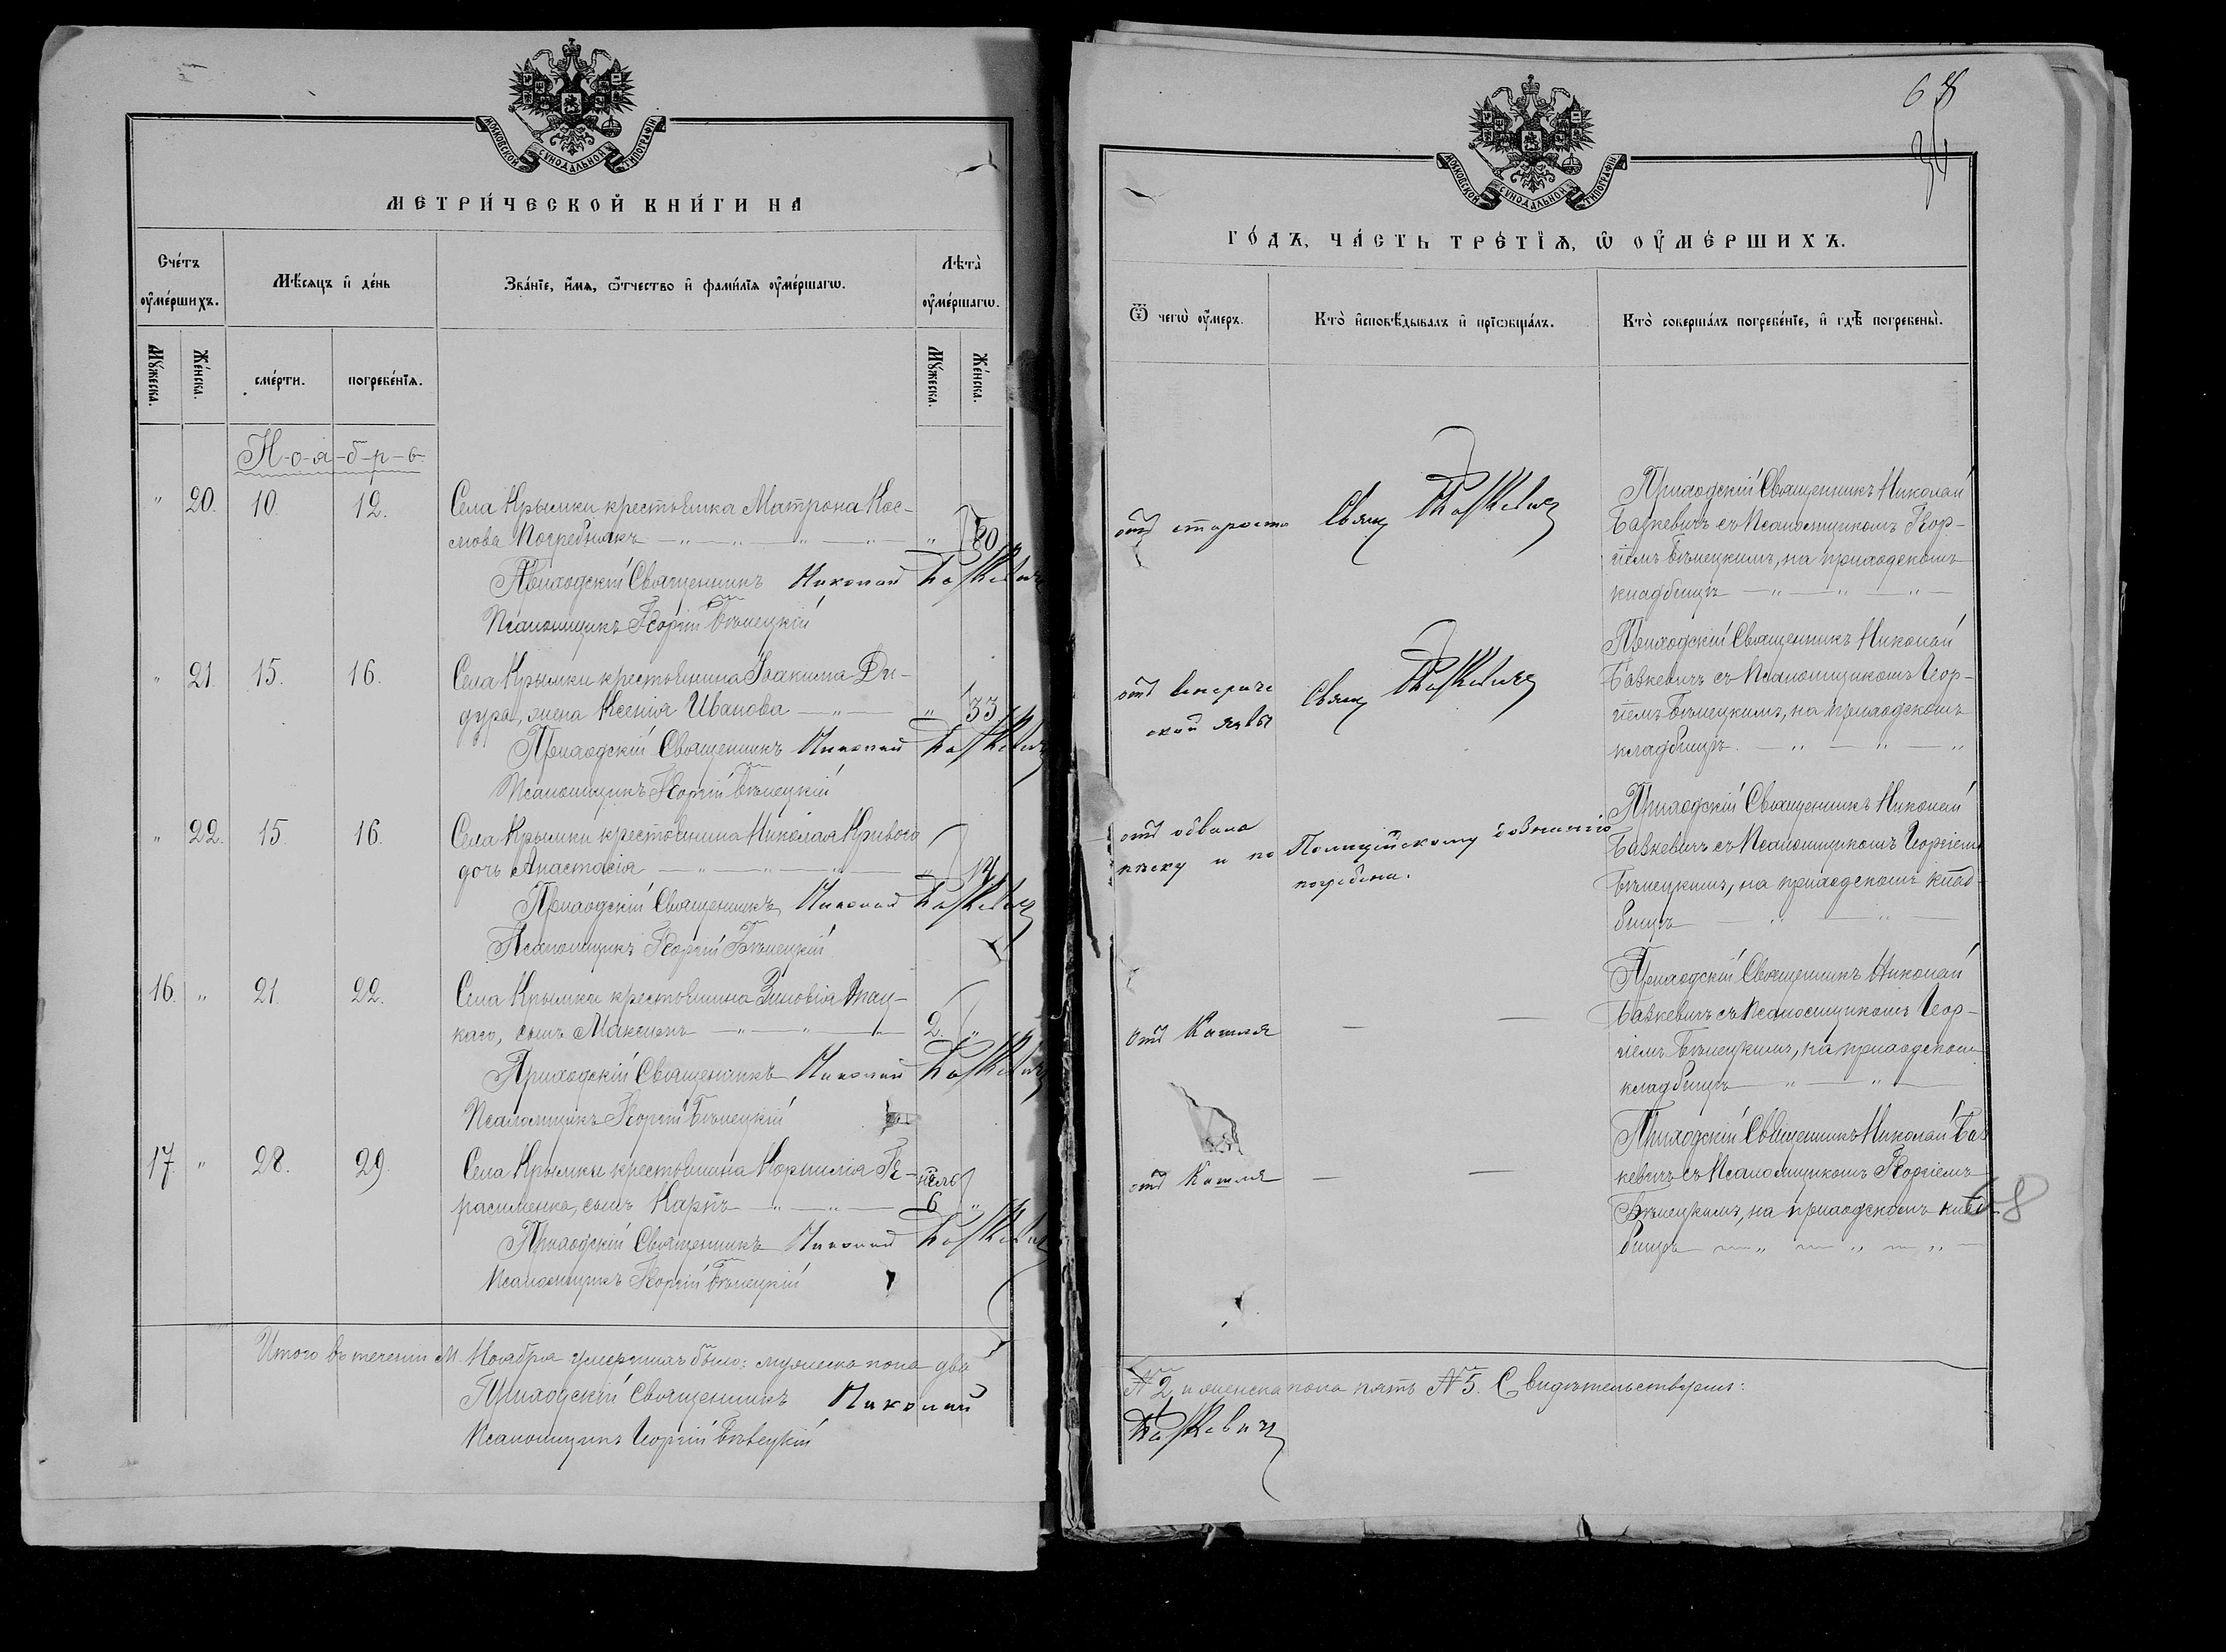 МОСКОВСКОЙ СѴНОДАЛЬНОЙ ТИПОГРАФІИ
МЕТРИ́ЧЕСКОЙ КНИ́ГИ НА
Сче́тъ оу҆ме́ршихъ.
Мѣ́сяцъ и҆ де́нь
Зва́нїе, и҆́мѧ, ѻ҆́тчество и҆ фами́лїѧ оу҆ме́ршагѡ.
Лѣта̀ оу҆ме́ршагѡ.
Мꙋ́жеска.
Же́нска.
сме́рти.
погребе́нїѧ.
Мꙋ́жеска.
Же́нска.
Н-о-я-б-р-ь
" 20. 10. 12. Села Крымки крестьянка Матрона Кос-
мова Погребнякъ " 80
Приходскій Священникъ Николай Базкевичъ
Псаломщикъ Георгій Бѣлецкій
" 21. 15. 16. Села Крымки крестьянина Іоакима Ди-
дура, жена Ксенія Иванова " 33
Приходскій Священникъ Николай Базкевичъ
Псаломщикъ Георгій Бѣлецкій
" 22. 15 16. Села Крымки крестьянина Николая Кривого
дочь Анастасія " 14
Приходскій Священникъ Николай Базкевичъ
Псаломщикъ Георгій Бѣлецкій
16. " 21. 22. Села Крымки крестьянина Зиновія
каго, сынъ Максимъ 2. "
Приходскій Священникъ Николай Базкевичъ
Псаломщикъ Георгій Бѣлецкій
17. " 28. 29. Села Крымки крестьянина Корнилія Ге-
расименко, сынъ Карпъ 6 "
Приходскій Священникъ Николай Базкевичъ
Псаломщикъ Георгій Бѣлецкій
Итого въ теченіи М. Ноября умершихъ было: мужеска пола два
Приходскій Священникъ Николай
Псаломщикъ Георгій Бѣлецкій
МОСКОВСКОЙ СѴНОДАЛЬНОЙ ТИПОГРАФІИ
ГО́ДЪ, ЧА́СТЬ ТРЕ́ТЇѦ, Ѡ҆ ОУ҆МЕ́РШИХЪ.
Ѿ чегѡ̀ оу҆́меръ.
Кто̀ и҆сповѣ́дывалъ и҆ прїѡбща́лъ.
Кто̀ соверша́лъ погребе́нїе, и҆ гдѣ̀ погребены̀.
отъ старости Свящ. Базкевичъ
Приходскій Священникъ Николай
Базкевичъ съ Псаломщикомъ Геор-
гіемъ Бѣлецкимъ, на приходскомъ
кладбищѣ
отъ венериче
ской язвы Свящ. Базкевичъ
Приходскій Священникъ Николай
Базкевичъ съ Псаломщикомъ Геор-
гіемъ Бѣлецкимъ, на приходскомъ
кладбищѣ
отъ обвала
песку и по Полицейскому дознанію
погребена.
Приходскій Священникъ Николай
Базкевичъ съ Псаломщикомъ Георгіемъ
Бѣлецкимъ, на приходскомъ клад-
бищѣ
отъ Кашля
Приходскій Священникъ Николай
Базкевичъ съ Псаломщикомъ Геор-
гіемъ Бѣлецкимъ, на приходском
кладбищѣ
отъ Кашля
Приходскій Священникъ Николай Баз
кевичъ съ Псаломщикомъ Георгіемъ
Бѣлецкимъ, на приходскомъ клад
бищѣ
68
№ 2, и женска пола пять № 5. Свидѣтельствуемъ:
Базкевичъ